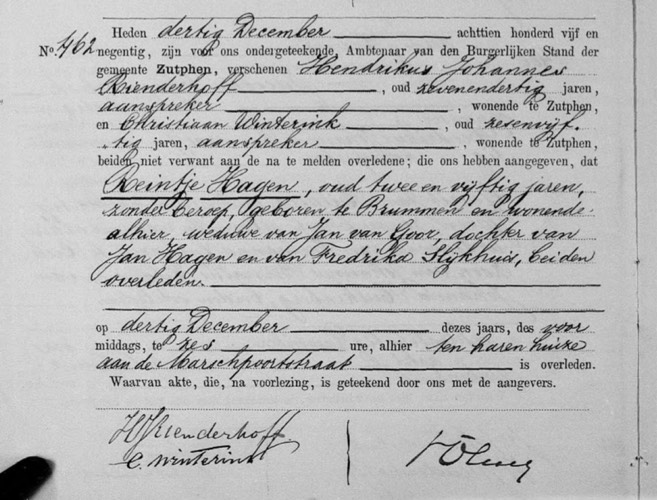 Heden dertig December achttien honderd vijf en
No. 462 negentig, zijn voor ons ondergeteekende, Ambtenaar van den Burgerlijken Stand der
gemeente Zutphen, verschenen Hendrikus Johannes
Rienderhoff, oud zevenendertig jaren,
aanspreker, wonende te Zutphen,
en Christiaan Winterink, oud zesenvijf-
tig jaren, aanspreker, wonende te Zutphen,
beiden niet verwant aan de na te melden overledene; die ons hebben aangegeven, dat
Reintje Hagen, oud twee en vijftig jaren,
zonder beroep, geboren te Brummen en wonende
alhier, weduwe van Jan van Goor, dochter van
Jan Hagen en van Fredrika Slijkhuis, beiden
overleden.
op dertig December dezes jaars, des voor
middags, te zes ure, alhier ten haren huize
aan de Marschpoortstraat is overleden.
Waarvan akte, die, na voorlezing, is geteekend door ons met de aangevers.
HJRienderhoff
C. Winterink